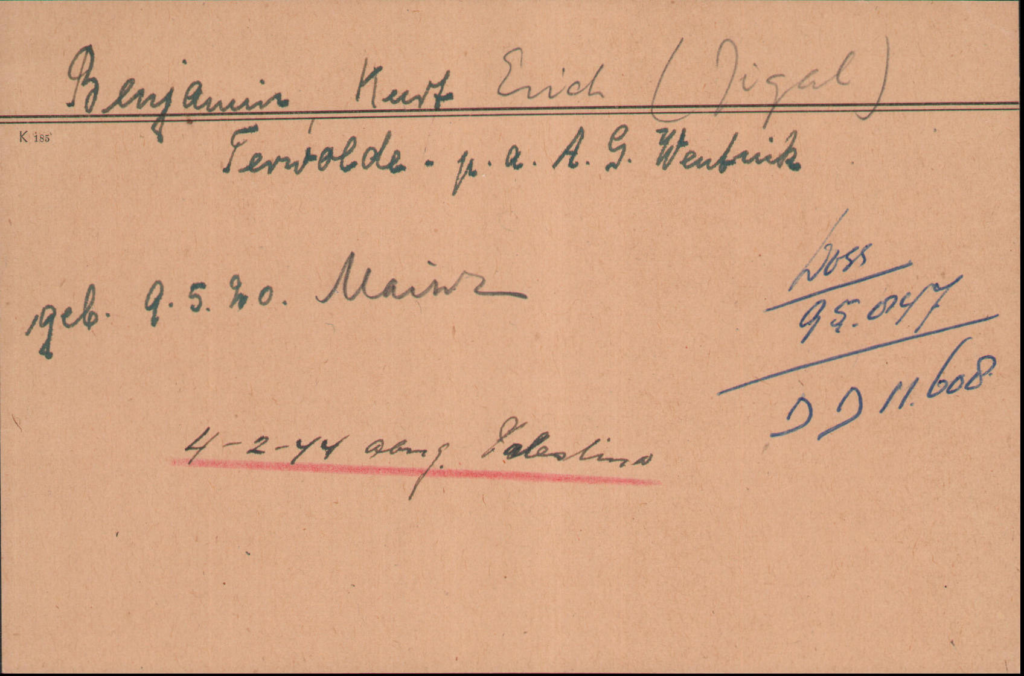 Benjamin Kurt Erich (Jigal)
K 185
Terwolde - p. a. A. G. Wentink
geb. 9.5.20. Mainz
Doss
95.047
DD 11.608
4-2-44 aang. Palestina